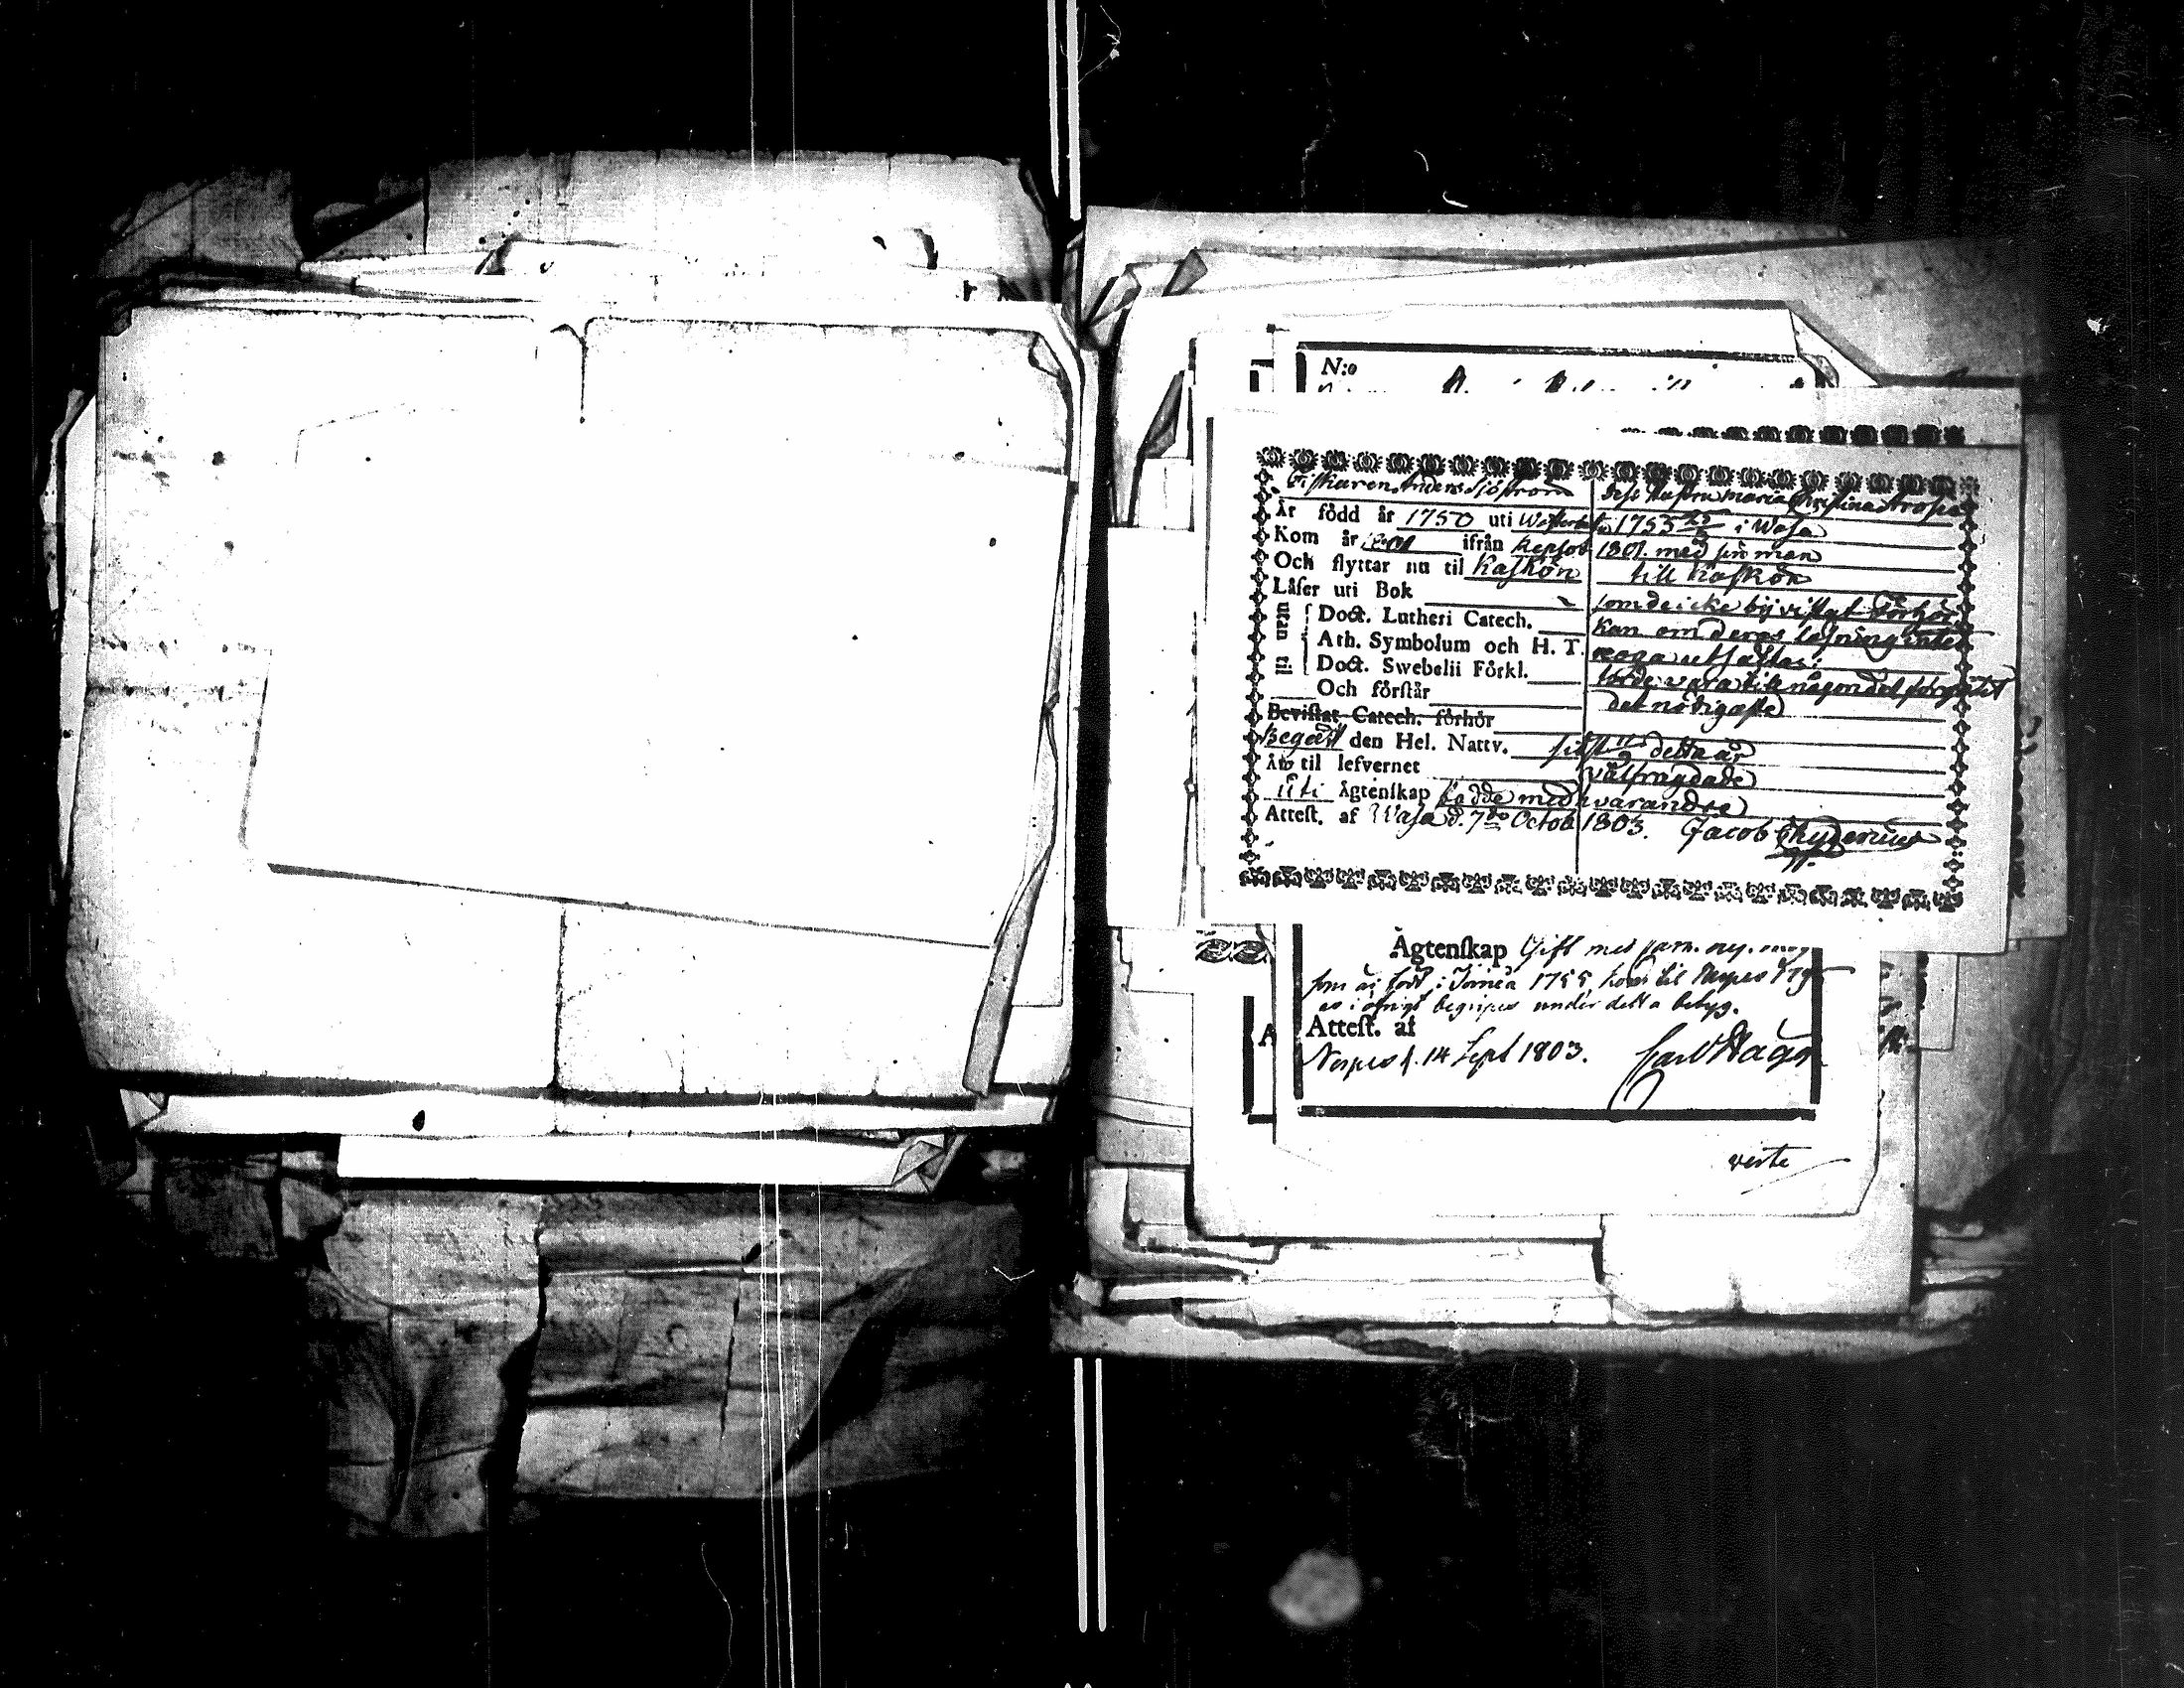 N:o
Fiskaren Anders Sjöström Dess Hustru Maria Christina Stropel
Är född år 1750 uti 1753 25/3 i Wasa
Kom år 1801 ifrån 1801. med sin man
Och flyttar nu til Kaskön till Kaskön
Läser uti Bok som de icke bijvistat Förhör
utan til Doct. Lutheri Catech. kan om deras läsning intet
Ath. Symbolum och H. T. noga utsättas:
Doct. Swebelii Förkl. torde vara till någon del förgätit
Och förstår det nödigaste
Bevistat Catech. förhör
Begådt den Hel. Nattv. sidst detta år
Är til lefvernet välfrägdade
Uti Ägtenskap både med hvarandra
Attest. af Wasa d. 7de Octob 1803. Jacob
Ägtenskap Gift med
som är född i 1755, kom til Nerpes
begripes under detta betyg.
A Attest. af
Nerpes d. 14 Sept 1803. Carl
verte